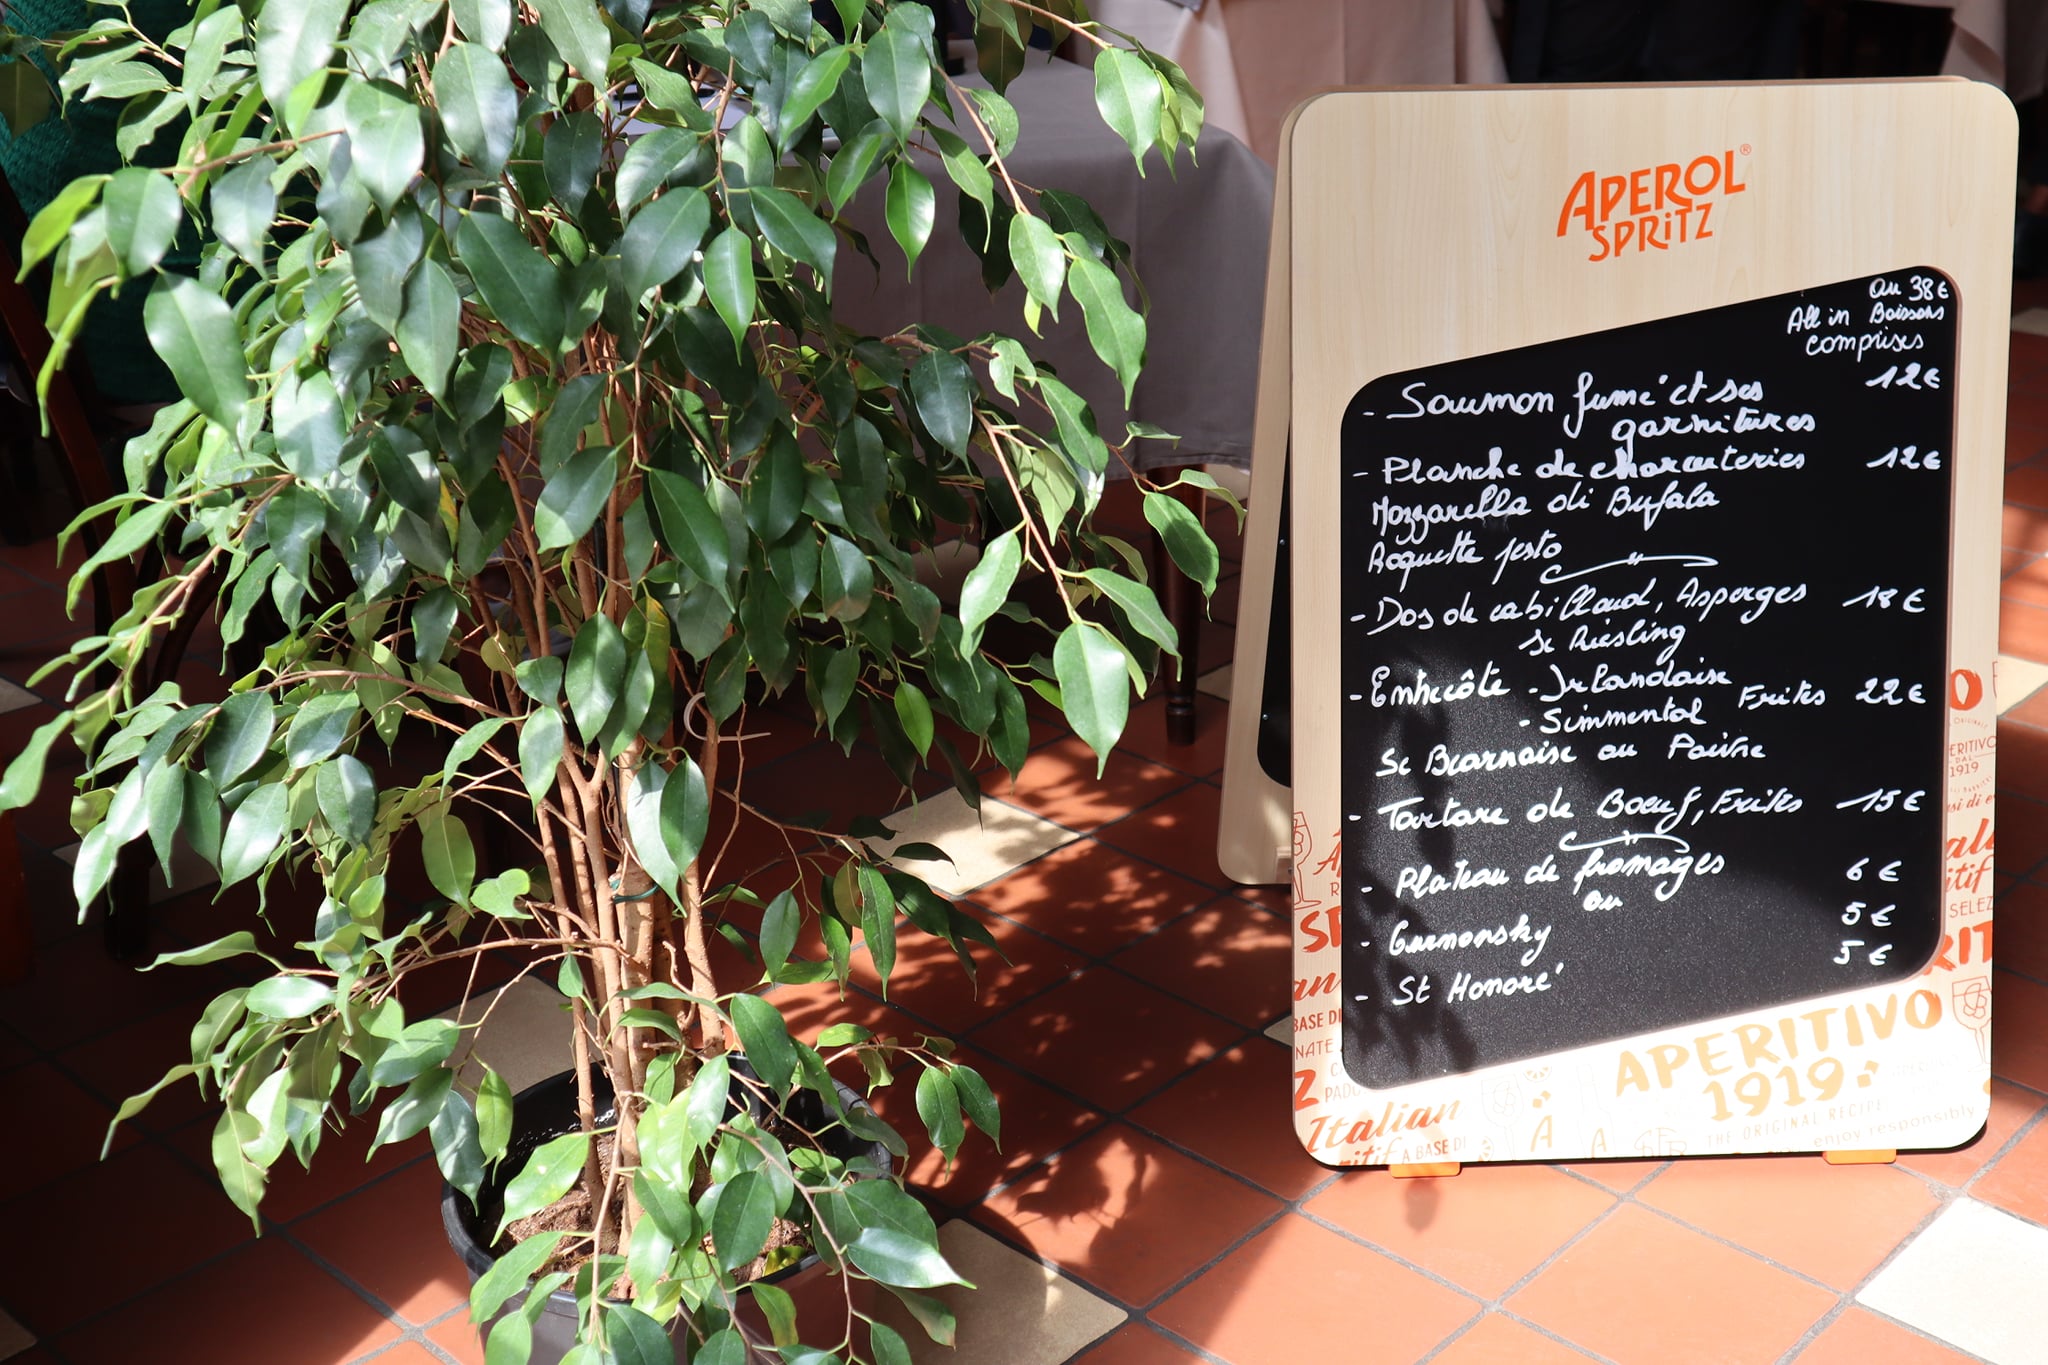 APEROL®
SPRiTZ
ou 38€
All in Boissons
comprises
- Saumon fumé et ses 12€
garnitures
- Planche de charcuteries 12€
Mozzarella di Bufala
Roquette pesto
- Dos de cabillaud, Asperges 18€
Sc Riesling
- Entrecôte - Irlandaise
- Simmental Frites 22€
Sc Bearnaise ou Poivre
- Tartare de Boeuf, Frites 15€
- Plateau de fromages 6€
ou
- Gurmonsky 5€
- St Honoré 5€
APERITIVO
1919
THE ORIGINAL RECIPE
enjoy responsibly
Italian
A BASE DI
BASE DI
ERITIVO
DAL
1919